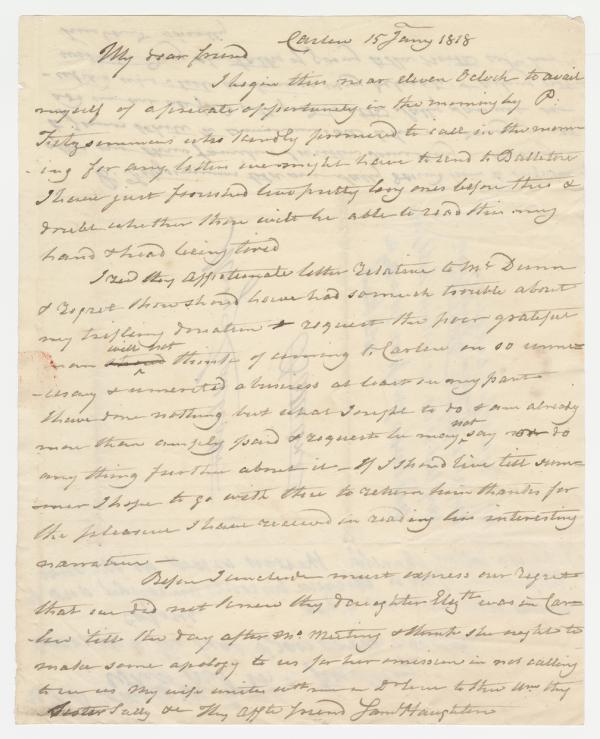 Carlow 15 Jany 1818
My dear friend
I begin this near eleven Oclock to avail
myself of a private opportunity in the morning by P.
Fitzsimmons who kindly promised to call in the morn
-ing for any letters we might have to send to Ballitore
I have just finished two pretty long ones before this &
doubt whether thou will be able to read this my
hand & head being tired
I recd thy affectionate letter relative to Mr Dunn
& regret thou should have had so much trouble about
my trifling donation & request the poor grateful
man will not think of coming to Carlow on so unne-
-cessary & unmerited a business at least on my part
I have done nothing but what I ought to do & am already
more than amply paid & request he may not say or do
any thing further about it - If I should live till sum-
-mer I hope to go with thee to return him thanks for
the pleasure I have received in reading his interesting
narrative -
Before I conclude must express our regret
that we did not know thy daughter Elizth was in Car-
low 'till the day after Mo. Meeting & think she ought to
make some apology to us for her omission in not calling
to see us My wife unites with me in Dr love to thee Wm thy
Sister Sally &c Thy affte friend Saml Haughton